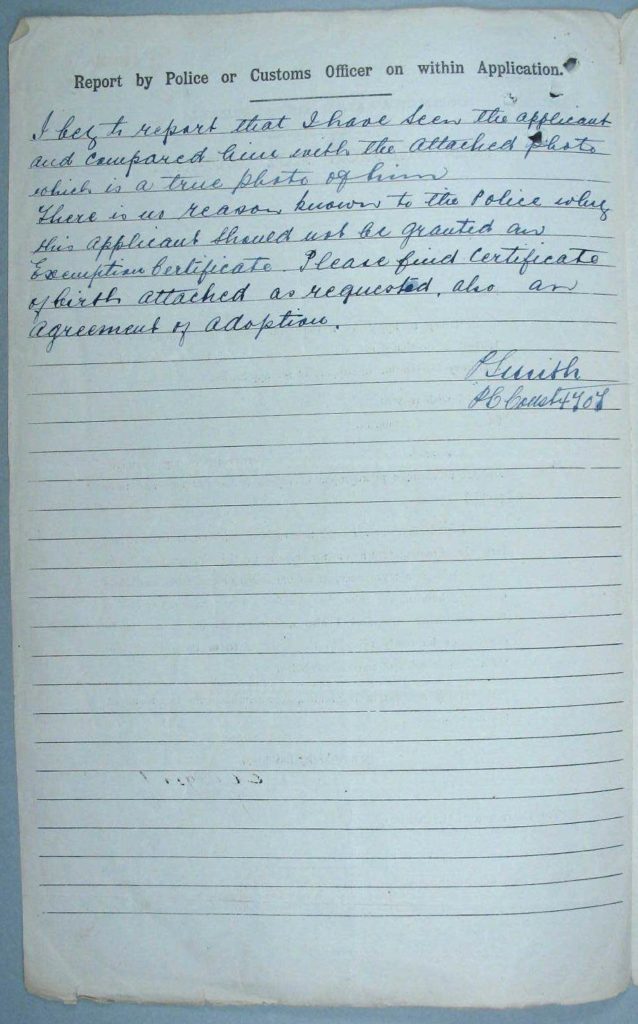 Report by Police or Customs Officer on within Application.
I beg to report that I have seen the applicant
and compared him with the attached photo
which is a true photo of him
There is no reason known to the Police why
this applicant should not be granted an
Exemption Certificate. Please find Certificate
of birth attached as requested, also an
agreement of adoption.
P Smith
Const 4707